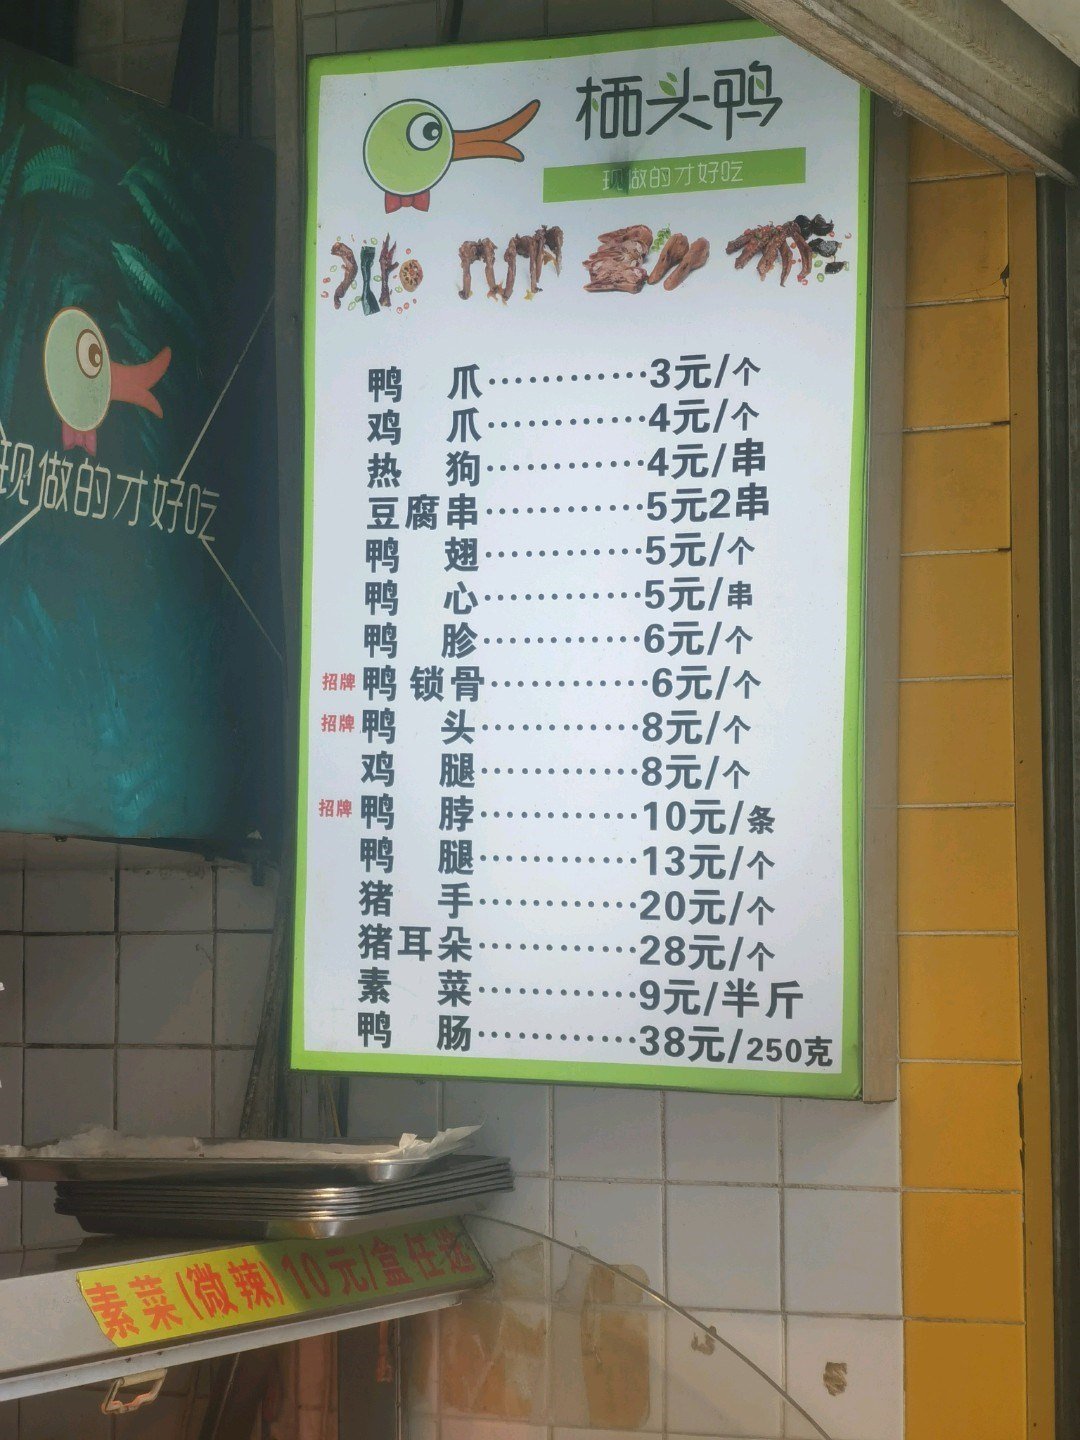 栖头鸭
现做的才好吃
鸭爪············3元/个
鸡爪············4元/个
热狗············4元/串
豆腐串············5元2串
鸭翅············5元/个
鸭心············5元/串
鸭胗············6元/个
招牌 鸭锁骨············6元/个
招牌 鸭头············8元/个
鸡腿············8元/个
招牌 鸭脖············10元/条
鸭腿············13元/个
猪手············20元/个
猪耳朵············28元/个
素菜············9元/半斤
鸭肠············38元/250克
现做的才好吃
素菜(微辣)10元/盒任选